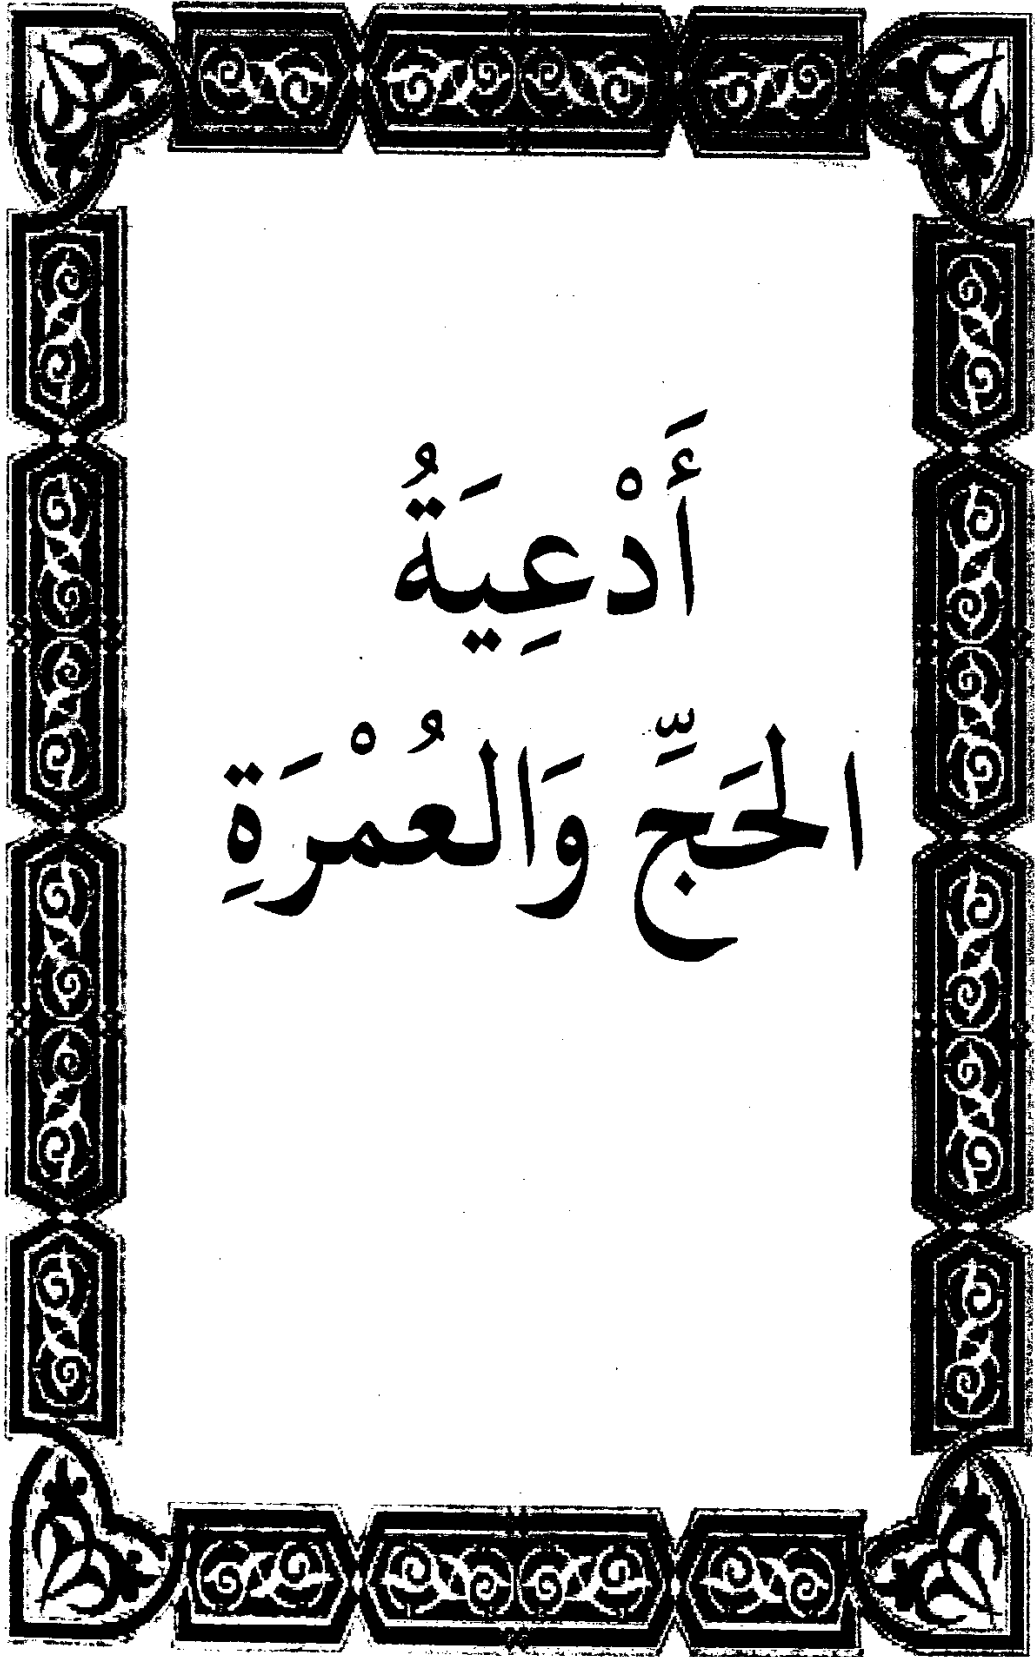 أَدْعِيَةُ
الحَجِّ وَالعُمْرَةِ